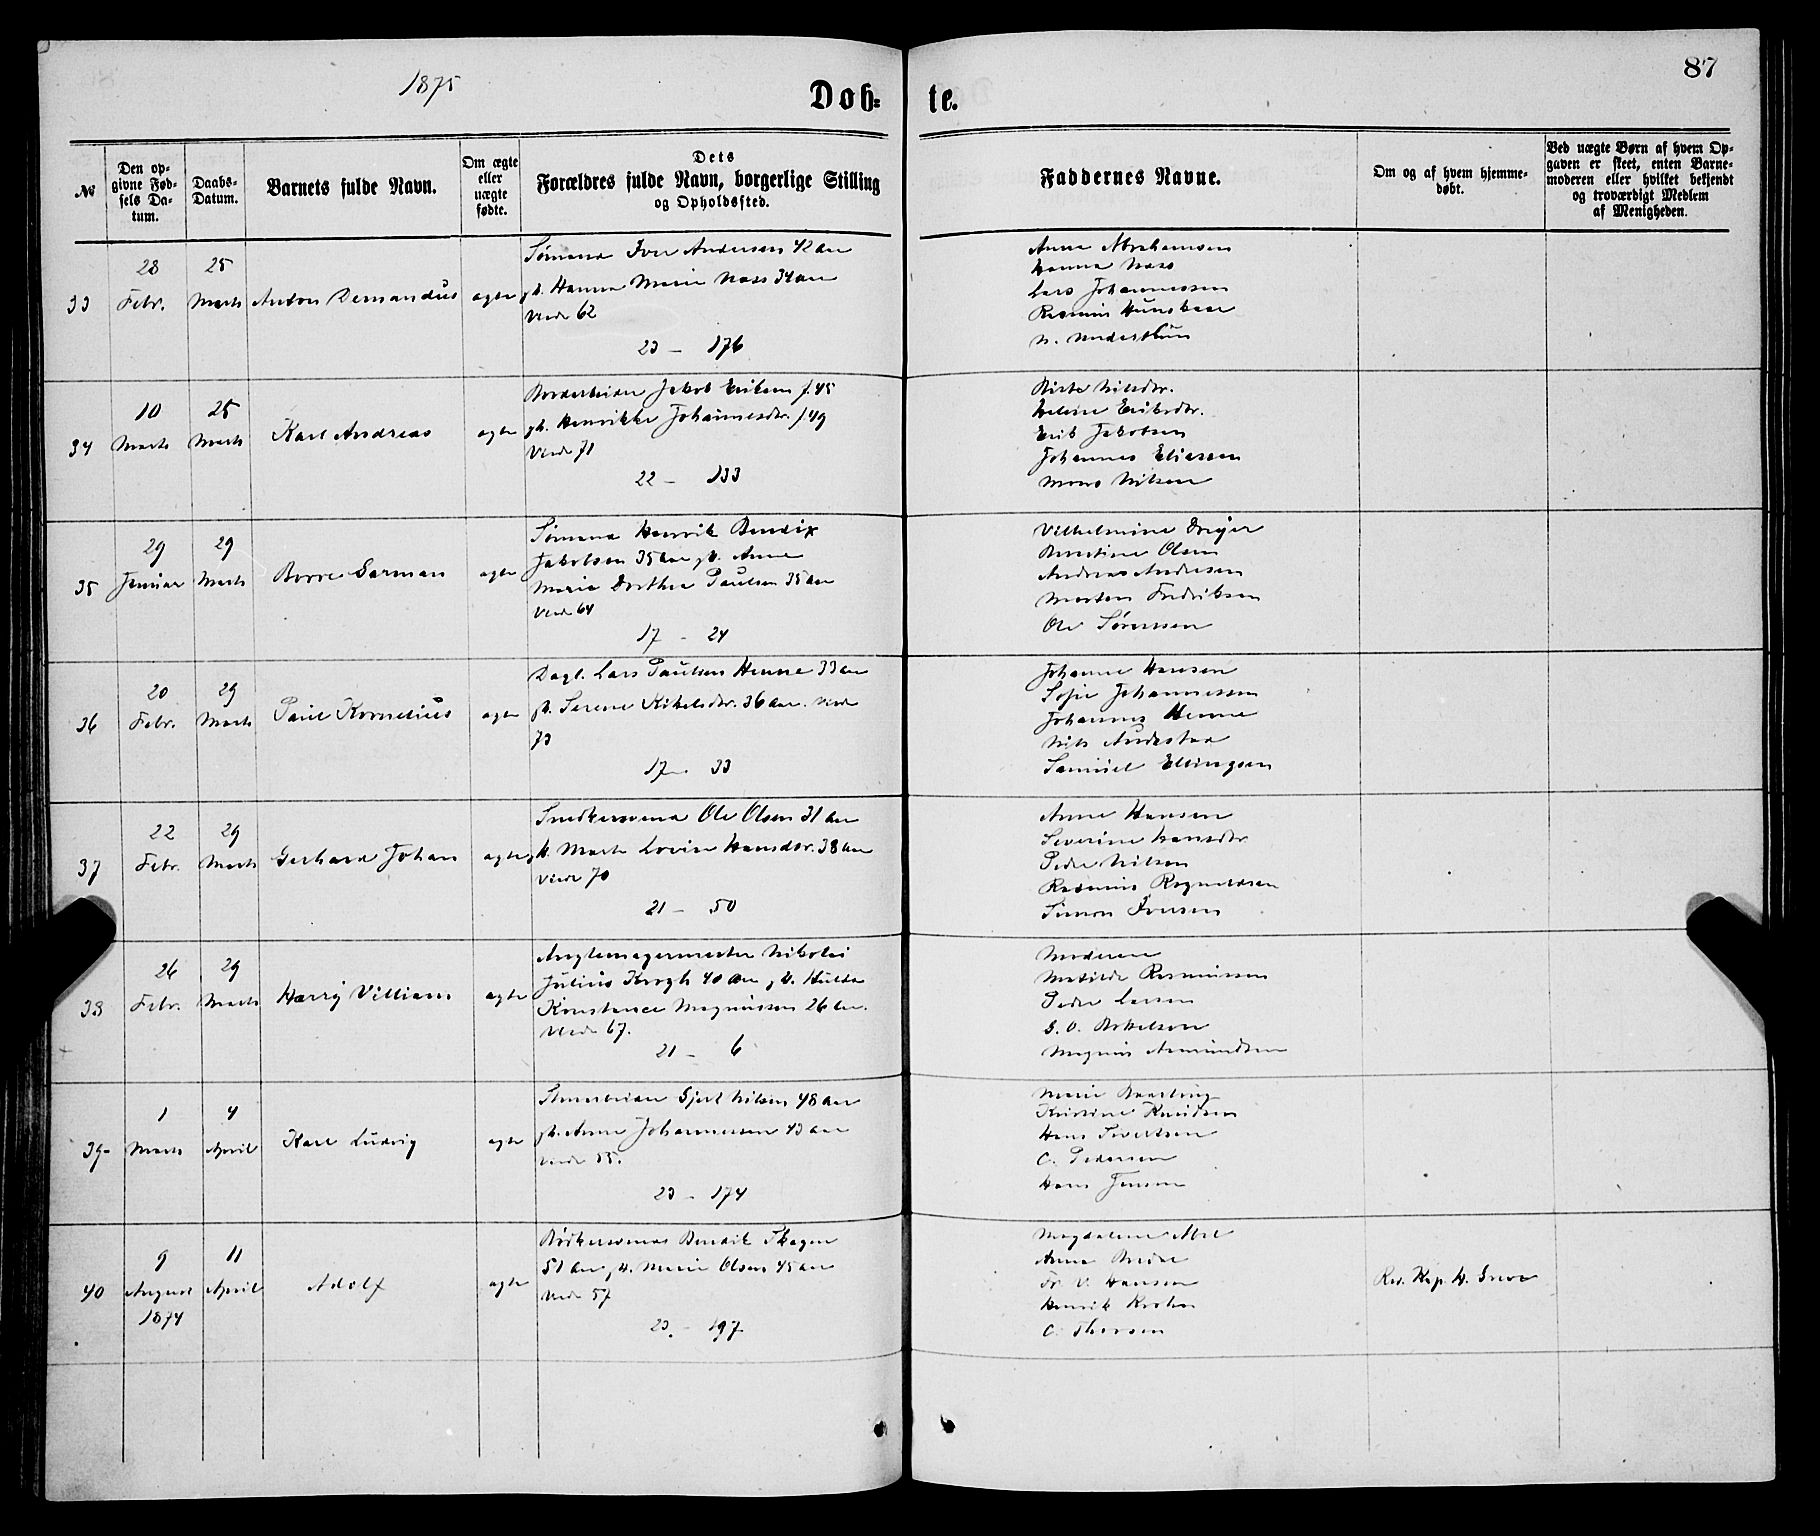 1875
87
Døb- te.
№
Den op-
givne Fød-
sels Da-
tum.
Daabs-
Datum.
Barnets fulde Navn.
Om ægte
eller
uægte
fødte.
Dets
Forældres fulde Navn, borgerlige Stilling
og Opholdssted.
Faddernes Navne.
Om og af hvem hjemme-
døbt.
Ved uægte Børn af hvem Op-
gaven er skeet, enten Barne-
moderen eller hvilket bekjendt
og troværdigt Medlem
af Menigheden.
33
28
Febr.
25
Marts
Anton
ægte
Sømand Iver Andersen 42 Aar
g. Hanna Marie Næss 34 Aar
Viede 62
23 - 176
Anna Abrahamsen
Hanna Næss
Lars Johannessen
Rasmus
34
10
Marts
25
Marts
Karl Andreas
ægte
Jakob Eriksen f. 45
g. Henrikke Johannesdr. f 49
Viede 71
22 - 133
Birte Nilsdr.
Helene Eriksdr.
Erik Jakobsen
Johannes Eliassen
Mons Nilsen
35
29
Januar
29
Marts
Borre Garman
ægte
Sømand Henrik Bendix
Jakobsen 35 Aar g. Anne
Marie Dorthea Paulsen 35 Aar
Viede 64
17 - 24
Vilhelmine Dreyer
Berntine Olsen
Andreas Andresen
Morten Fredriksen
Ole Sørensen
36
20
Febr.
29
Marts
Paul Kornelius
ægte
Dagl. Lars Paulsen Henne 33 Aar
g. Serene Kikelsdr. 36 Aar. Viede
73
17 - 33
Johanne Hansen
Sofie Johannessen
Johannes Henne
Nils
Samuel Ellingsen
37
22
Febr.
29
Marts
Gerhard Johan
ægte
Snedkersvend Ole Olsen 31 Aar
g. Marte Lovise Hansdr. 38 Aar
Viede 70
21 - 50
Anne Hansen
Severine Hansdtr
Peder Nilsen
Rasmus Rognaldsen
Simon Iversen
38
26
Febr.
29
Marts
Harry Villiam
ægte
Nikolai
Julius Krogh 40 Aar g. Hulda
Konstance Magnussen 26 Aar.
Viede 67.
21 - 6
Moderen
Matilde Rasmussen
Peder Larsen
Magnus Asmundsen
39
1
Marts
4
April
Karl Ludvig
ægte
Gjert Nilsen 48 Aar
g. Anne Johannessen 43 Aar
Viede 55.
23 - 174
Marie
Kristine Knudsen
Hans Sivertsen
C. Pedersen
Hans Jensen
40
9
August
1874
11
April
Adolf
ægte
Bødkersvend Bendik Skagen
51 Aar g. Marie Olsen 45 Aar
Viede 57
23. - 197
Magdalene Abel
Anna
Fr. V. Hansen
Henrik Krohn
C. Thorsen
Res. Kap. H. Greve